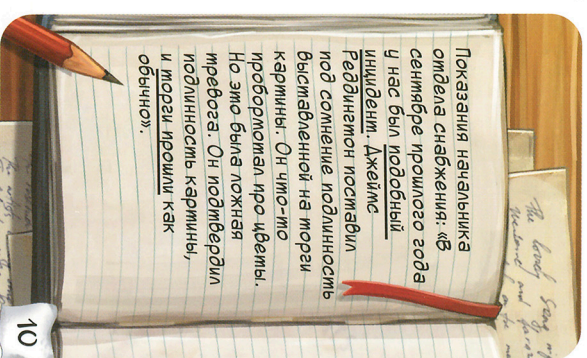 Показания начальника
отдела снабжения: «В
сентябре прошлого года
у нас был подобный
инцидент. Джеймс
Реддингтон поставил
под сомнение подлинность
выставленной на торги
картины. Он что-то
пробормотал про цветы.
Но это была ложная
тревога. Он подтвердил
подлинность картины,
и торги прошли как
обычно».
10
The lovely